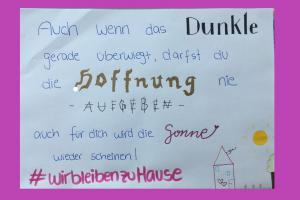 Auch wenn das Dunkle
gerade überwiegt, darfst du
die Hoffnung nie
- AUFGEBEN -
auch für dich wird die Sonne
wieder scheinen!
#wirbleibenzuHause